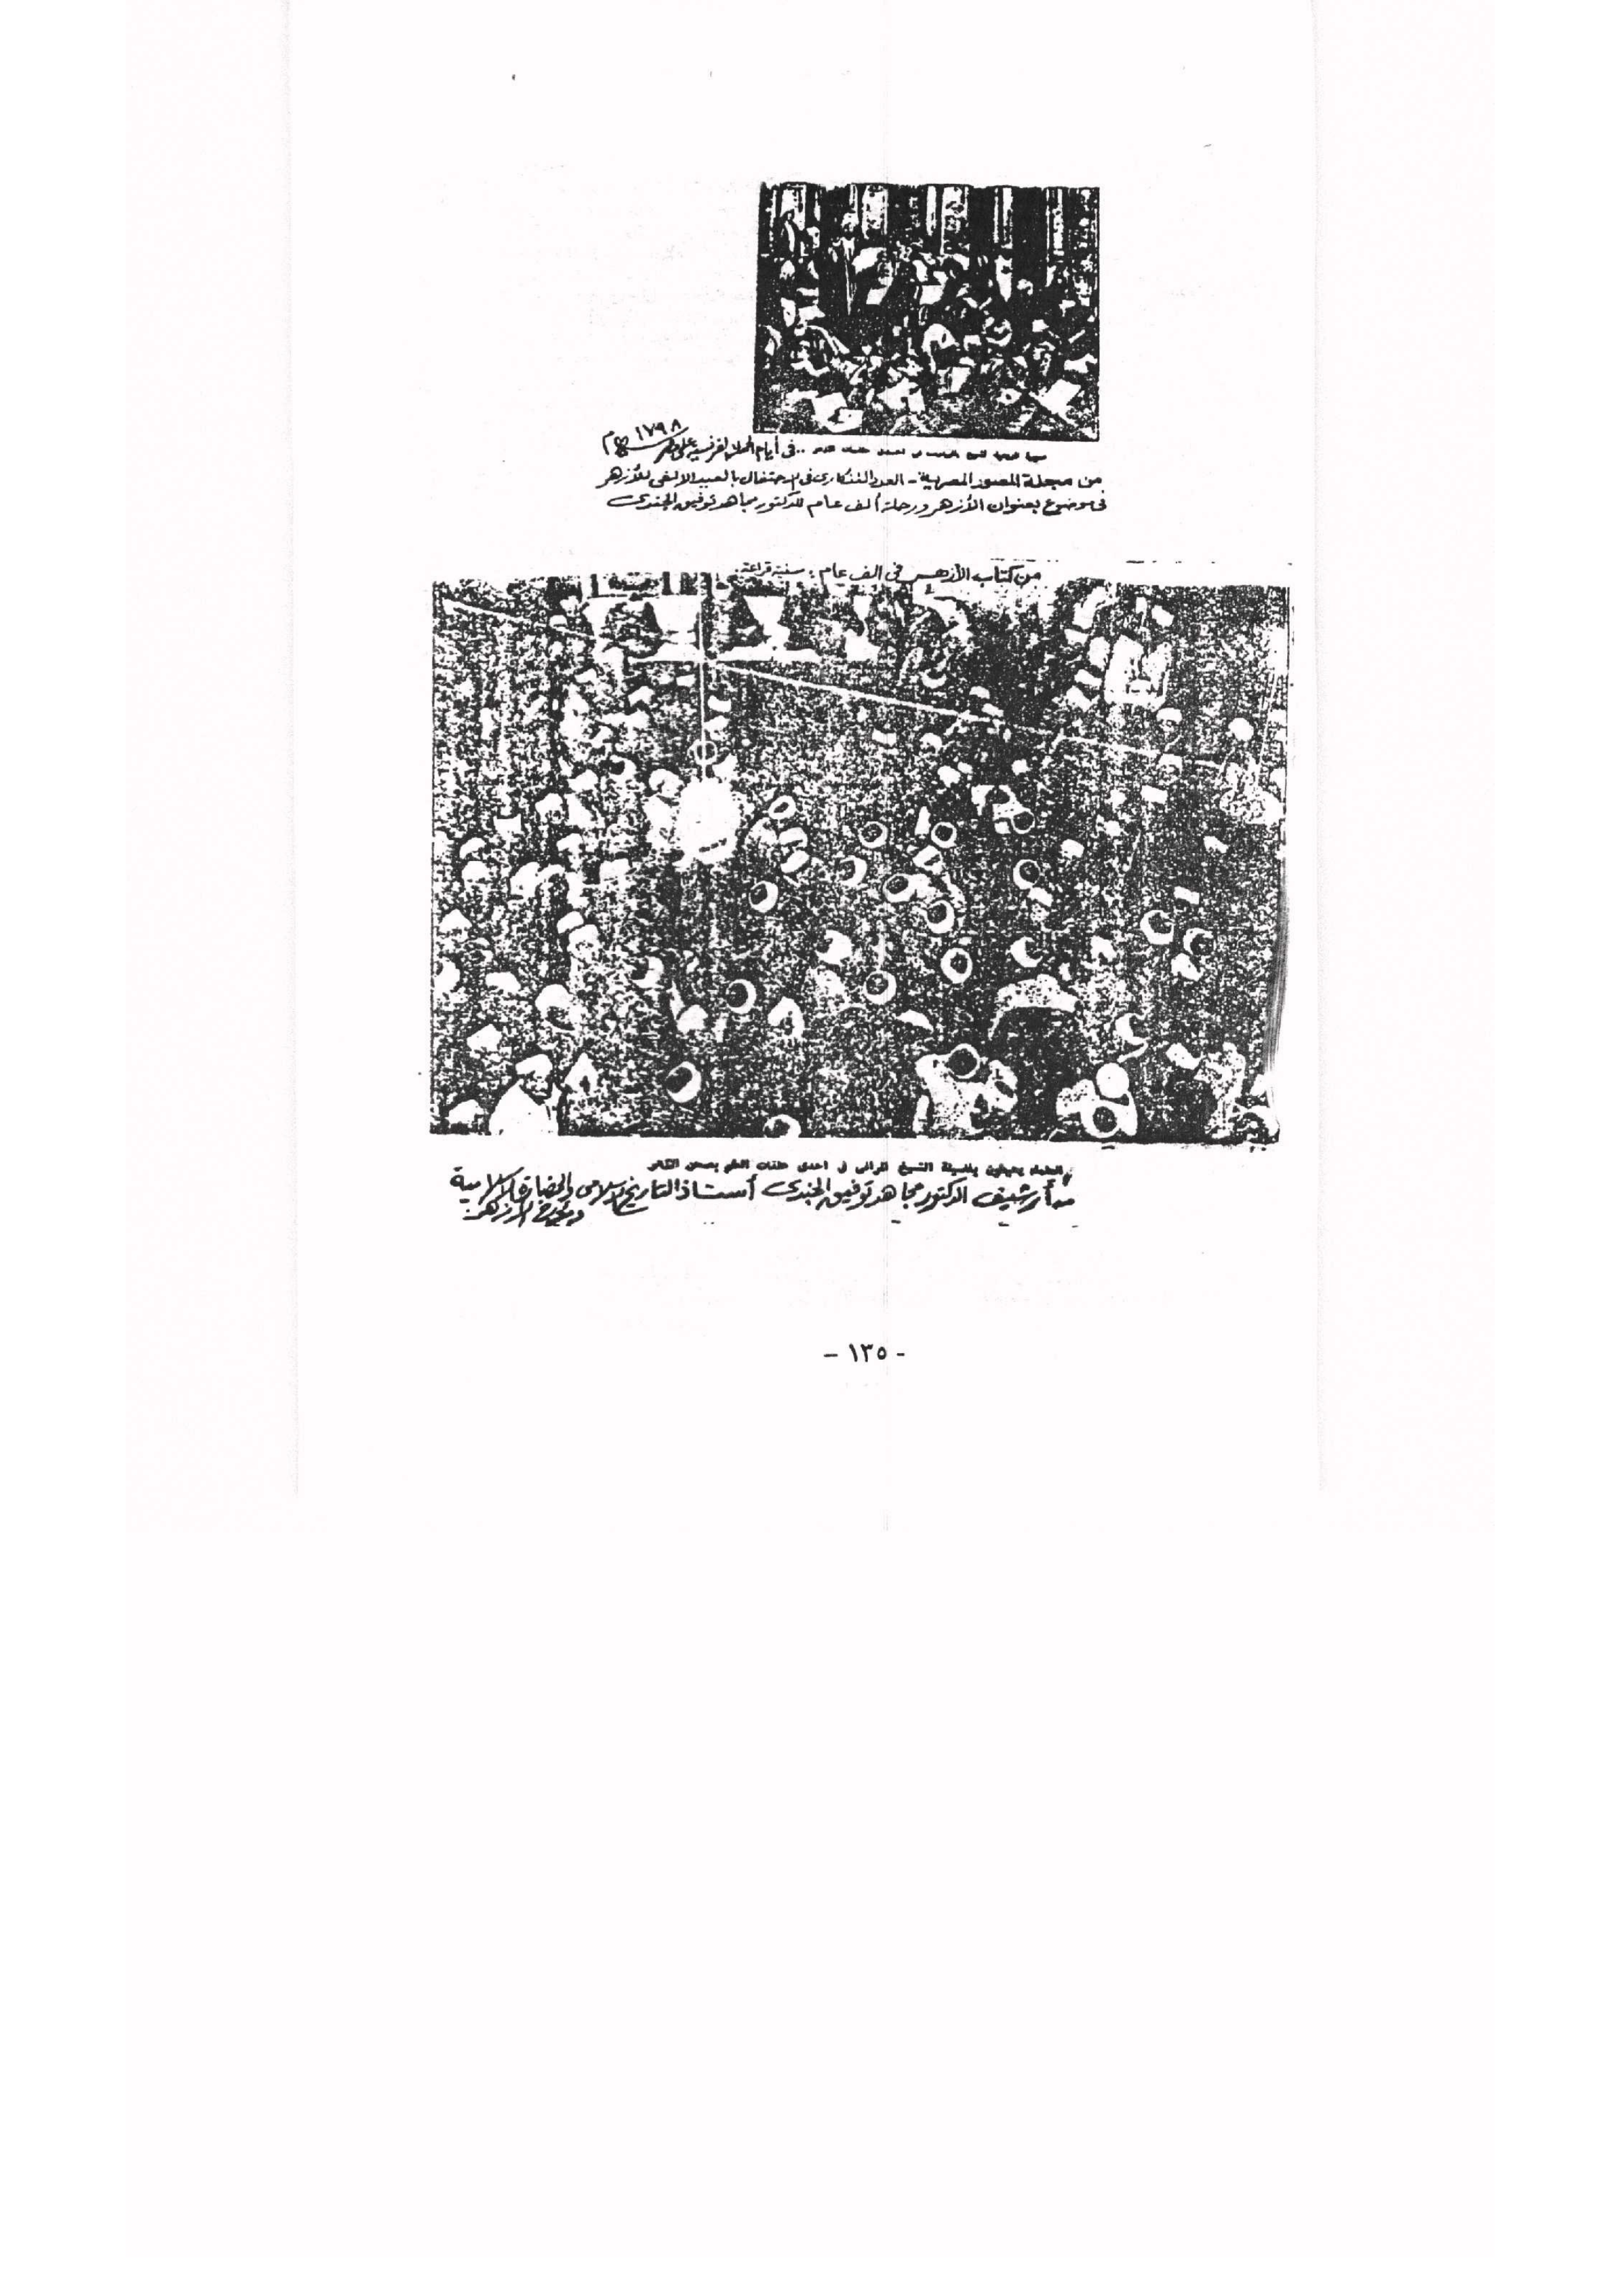 في أيام الحملة الفرنسية على مصر سنة ١٧٩٨م
من مجلة المصور المصرية - العدد التذكارى فى الاحتفال بالعيد الألفى للأزهر
فى موضوع بعنوان الأزهر ورحلة ألف عام للدكتور مجاهد توفيق الجندى
من كتاب الأزهر فى ألف عام : سنية قراعة
العلماء يحيطون بفضيلة الشيخ المراغى فى احدى حلقات العلم بصحن
من أرشيف الدكتور مجاهد توفيق الجندى أستاذ التاريخ الإسلامى والحضارة الإسلامية
ومؤرخ الأزهر
- ١٣٥ -